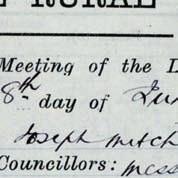 RURAL
Meeting of the
8th day of
Joseph Mitch
Councillors: Mess